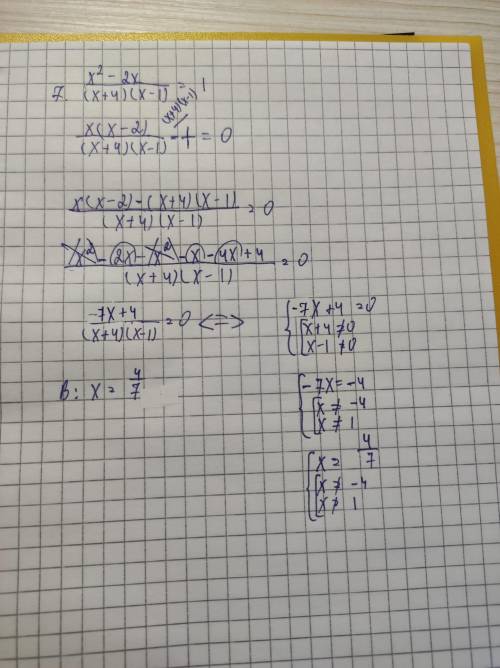 7. (x² - 2x)/((x+4)(x-1)) = 1
(x(x-2))/((x+4)(x-1)) - 1 = 0 (x+4)(x-1)
(x(x-2) - (x+4)(x-1))/((x+4)(x-1)) = 0
(x² - 2x - x² - x - 4x + 4)/((x+4)(x-1)) = 0
(-7x+4)/((x+4)(x-1)) = 0 <=> { -7x+4 = 0
[ x+4 ≠ 0
x-1 ≠ 0
В: x = 4/7
{ -7x = -4
[ x ≠ -4
x ≠ 1
{ x = 4/7
[ x ≠ -4
x ≠ 1